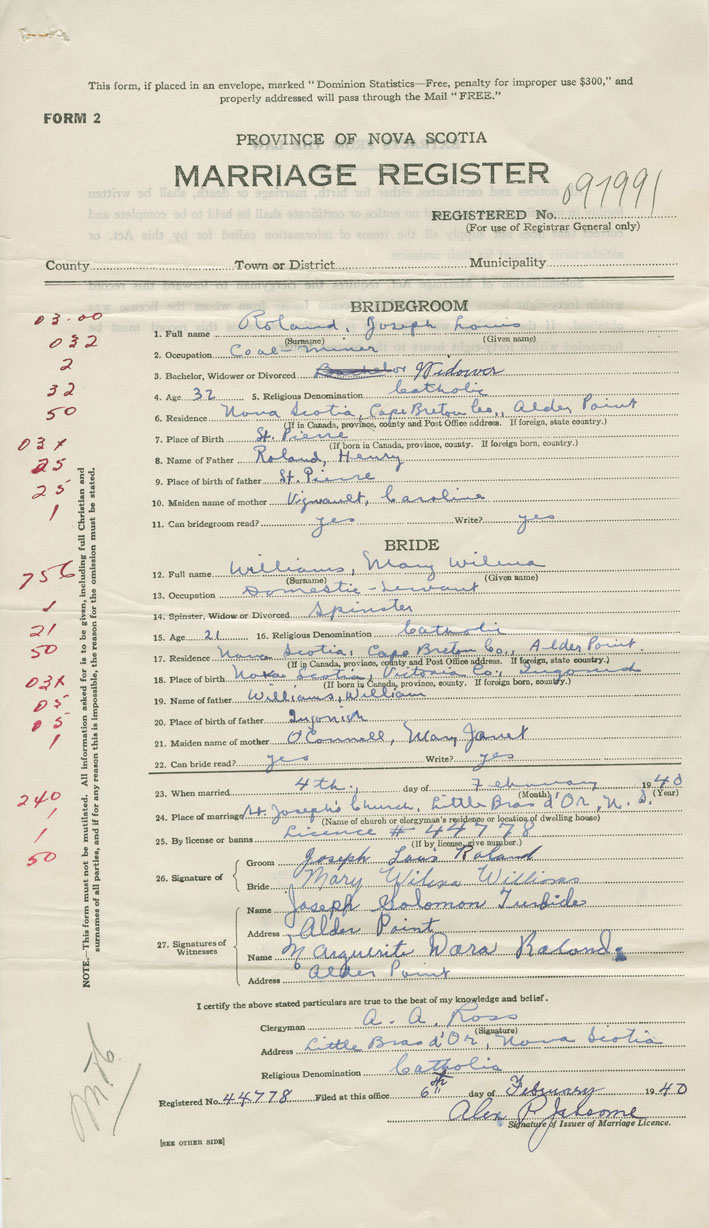 This form, if placed in an envelope, marked "Dominion Statistics—Free, penalty for improper use $300," and
properly addressed will pass through the Mail "FREE."
FORM 2
PROVINCE OF NOVA SCOTIA
MARRIAGE REGISTER
REGISTERED No. 097991
(For use of Registrar General only)
County Town or District Municipality
BRIDEGROOM
1. Full name Roland, Joseph Louis
(Surname) (Given name)
2. Occupation Coal-Miner
3. Bachelor, Widower or Divorced Bachelor Widower
4. Age 32 5. Religious Denomination Catholic
6. Residence Nova Scotia, Cape Breton Co., Alder Point
(If in Canada, province, county and Post Office address. If foreign, state country.)
7. Place of Birth St. Pierre
(If born in Canada, province, county. If foreign born, country.)
8. Name of Father Roland, Henry
9. Place of birth of father St. Pierre
10. Maiden name of mother Vigneault, Caroline
11. Can bridegroom read? yes Write? yes
BRIDE
12. Full name Williams, Mary Wilena
(Surname) (Given name)
13. Occupation Domestic-Servant
14. Spinster, Widow or Divorced Spinster
15. Age 21 16. Religious Denomination Catholic
17. Residence Nova Scotia, Cape Breton Co., Alder Point.
(If in Canada, province, county and Post Office address. If foreign, state country.)
18. Place of birth Nova Scotia, Victoria Co., Ingonish
(If born in Canada, province, county. If foreign born, country.)
19. Name of father Williams, William
20. Place of birth of father Ingonish
21. Maiden name of mother O'Connell, Mary Janet
22. Can bride read? yes Write? yes
23. When married 4th., day of February 1940
(Month) (Year)
24. Place of marriage St. Joseph's Church, Little Bras d'Or, N. S.
(Name of church or clergyman's residence or location of dwelling house)
25. By license or banns Licence # 44778
(If by license, give number.)
26. Signature of
Groom Joseph Lous Roland
Bride Mary Wilena Williams
27. Signatures of Witnesses
Name Joseph Solomon Turbide
Address Alder Point
Name Marguerite Roland
Address Alder Point
I certify the above stated particulars are true to the best of my knowledge and belief.
Clergyman A. A. Ross
(Signature)
Address Little Bras d'Or, Nova Scotia
Religious Denomination Catholic
Registered No. 44778 Filed at this office 6th day of February 1940
Alex P
Signature of Issuer of Marriage Licence.
[SEE OTHER SIDE]
NOTE.—This form must not be mutilated. All information asked for is to be given, including full Christian and
surnames of all parties, and if for any reason this is impossible, the reason for the omission must be stated.
03.00
032
2
32
50
03X
25
25
1
756
1
21
50
03X
05
05
1
240
1
1
50